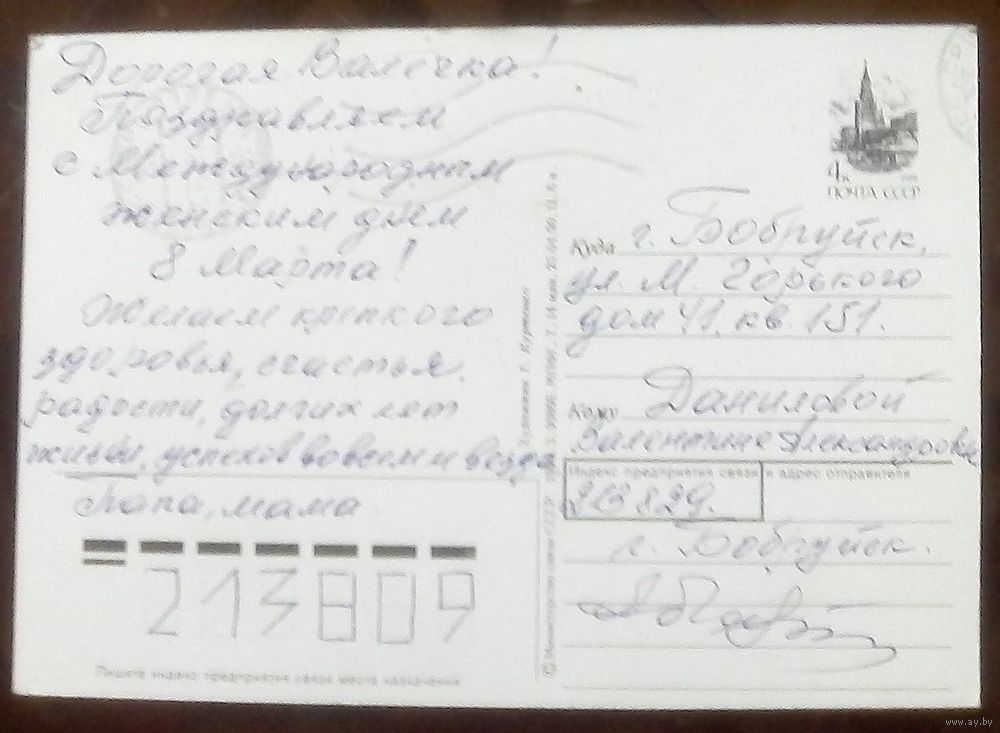 Дорогая Валечка!
Поздравляем
с Международным
женским днем
8 Марта!
Желаем крепкого
здоровья, счастья,
радости, долгих лет
жизни, успехов во всем и везде
Папа, мама
213809
Пишите индекс предприятия связи места назначения
© Министерство связи СССР
Художник
4к
ПОЧТА СССР
Куда г. Бобруйск,
ул. М. Горького
дом 41, кв. 151.
Кому Даниловой
Валентине Александровне
Индекс предприятия связи и адрес отправителя
213829.
г. Бобруйск.
www.ay.by